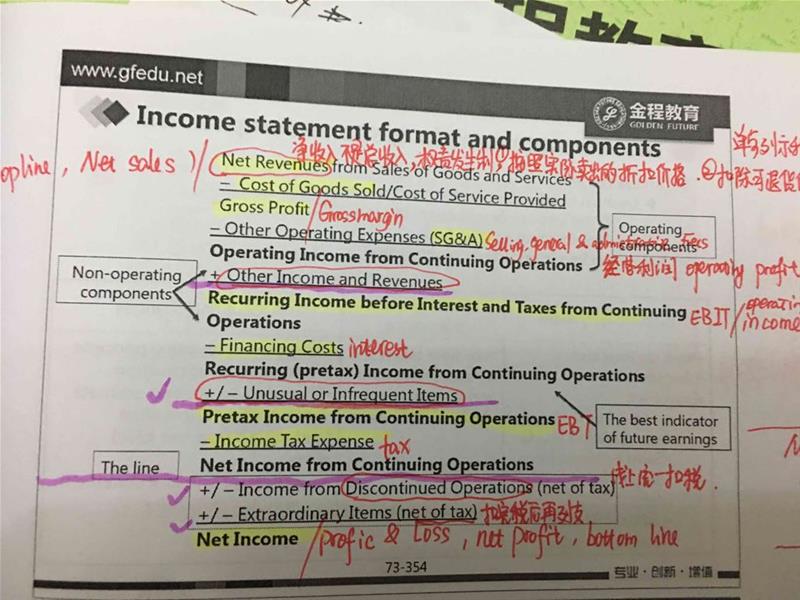 www.gfedu.net
金程教育
GOLDEN FUTURE
Income statement format and components
opline, Net sales )/
Net Revenues from Sales of Goods and Services
– Cost of Goods Sold/Cost of Service Provided
Gross Profit /Grossmargin
– Other Operating Expenses (SG&A) Selling, general & administrative fees
Operating components
Operating Income from Continuing Operations 经营利润 operating profit
Non-operating components
+ Other Income and Revenues
Recurring Income before Interest and Taxes from Continuing EBIT/operatin
Operations income
– Financing Costs interest
Recurring (pretax) Income from Continuing Operations
+/– Unusual or Infrequent Items
Pretax Income from Continuing Operations EBT
The best indicator of future earnings
– Income Tax Expense tax
The line
Net Income from Continuing Operations
+/– Income from Discontinued Operations (net of tax)
+/– Extraordinary Items (net of tax)
Net Income /profic & Loss, net profit, bottom line
73-354
专业·创新·增值